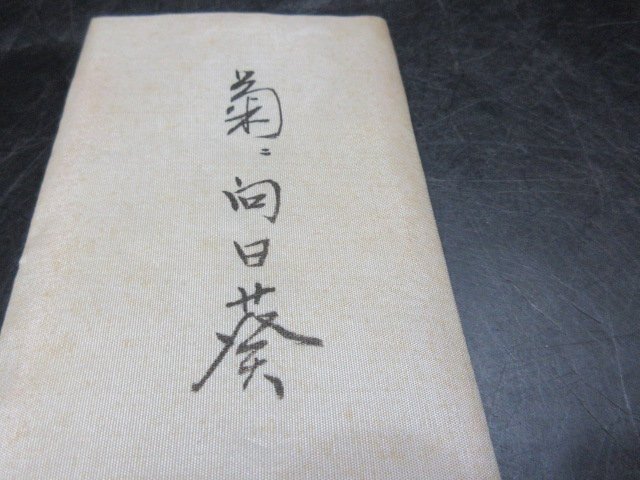 菊ニ向日葵